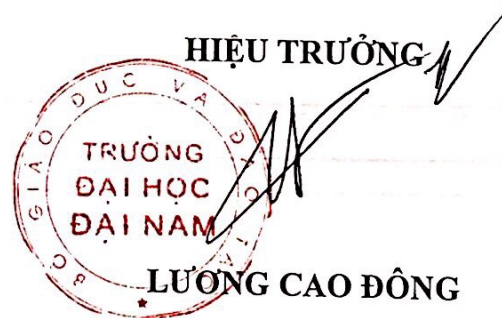 HIỆU TRƯỞNG
BỘ GIÁO DỤC VÀ ĐÀO TẠO
TRƯỜNG
ĐẠI HỌC
ĐẠI NAM
LƯƠNG CAO ĐÔNG